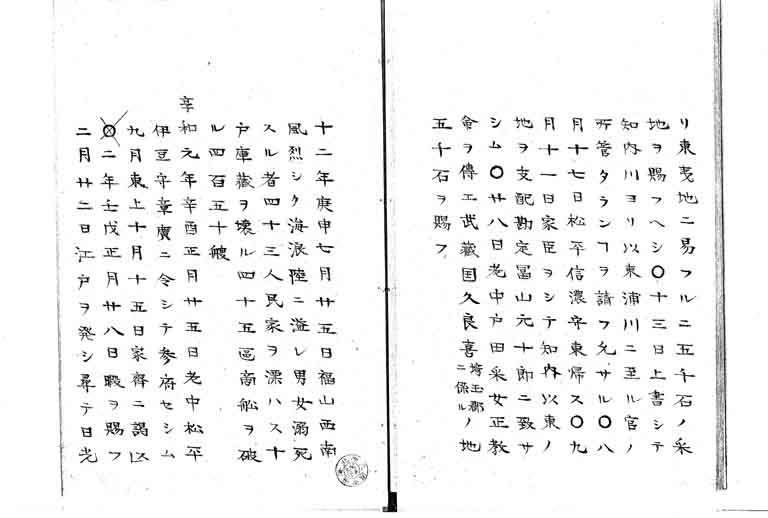 リ東夷地ニ易フルニ五千石ノ采
地ヲ賜フヘシ〇十三日上書シテ
知内川ヨリ以東浦川ニ至ル官ノ
所管タランヿヲ請フ允サル〇八
月十七日松平信濃守東帰ス〇九
月十一日家臣ヲシテ知内以東ノ
地ヲ支配勘定冨山元十郎ニ致サ
シム〇廿八日老中戸田采女正教
命ヲ傳エ武藏国久良喜埼玉郡ニ係ルノ地
五千石ヲ賜フ
十二年庚申七月廿五日福山西南
風烈シク海浪陸ニ溢レ男女溺死
スル者四十三人民家ヲ漂ハス十
戸庫藏ヲ壊ル四十五區商舩ヲ破
ル四百五十艘
享和元年辛酉正月廿五日老中松平
伊豆守章廣ニ令シテ参府セシム
九月東上十月十五日家齊ニ謁ス
〇二年壬戊正月廿八日暇ヲ賜フ
二月廿二日江戸ヲ発シ尋テ日光